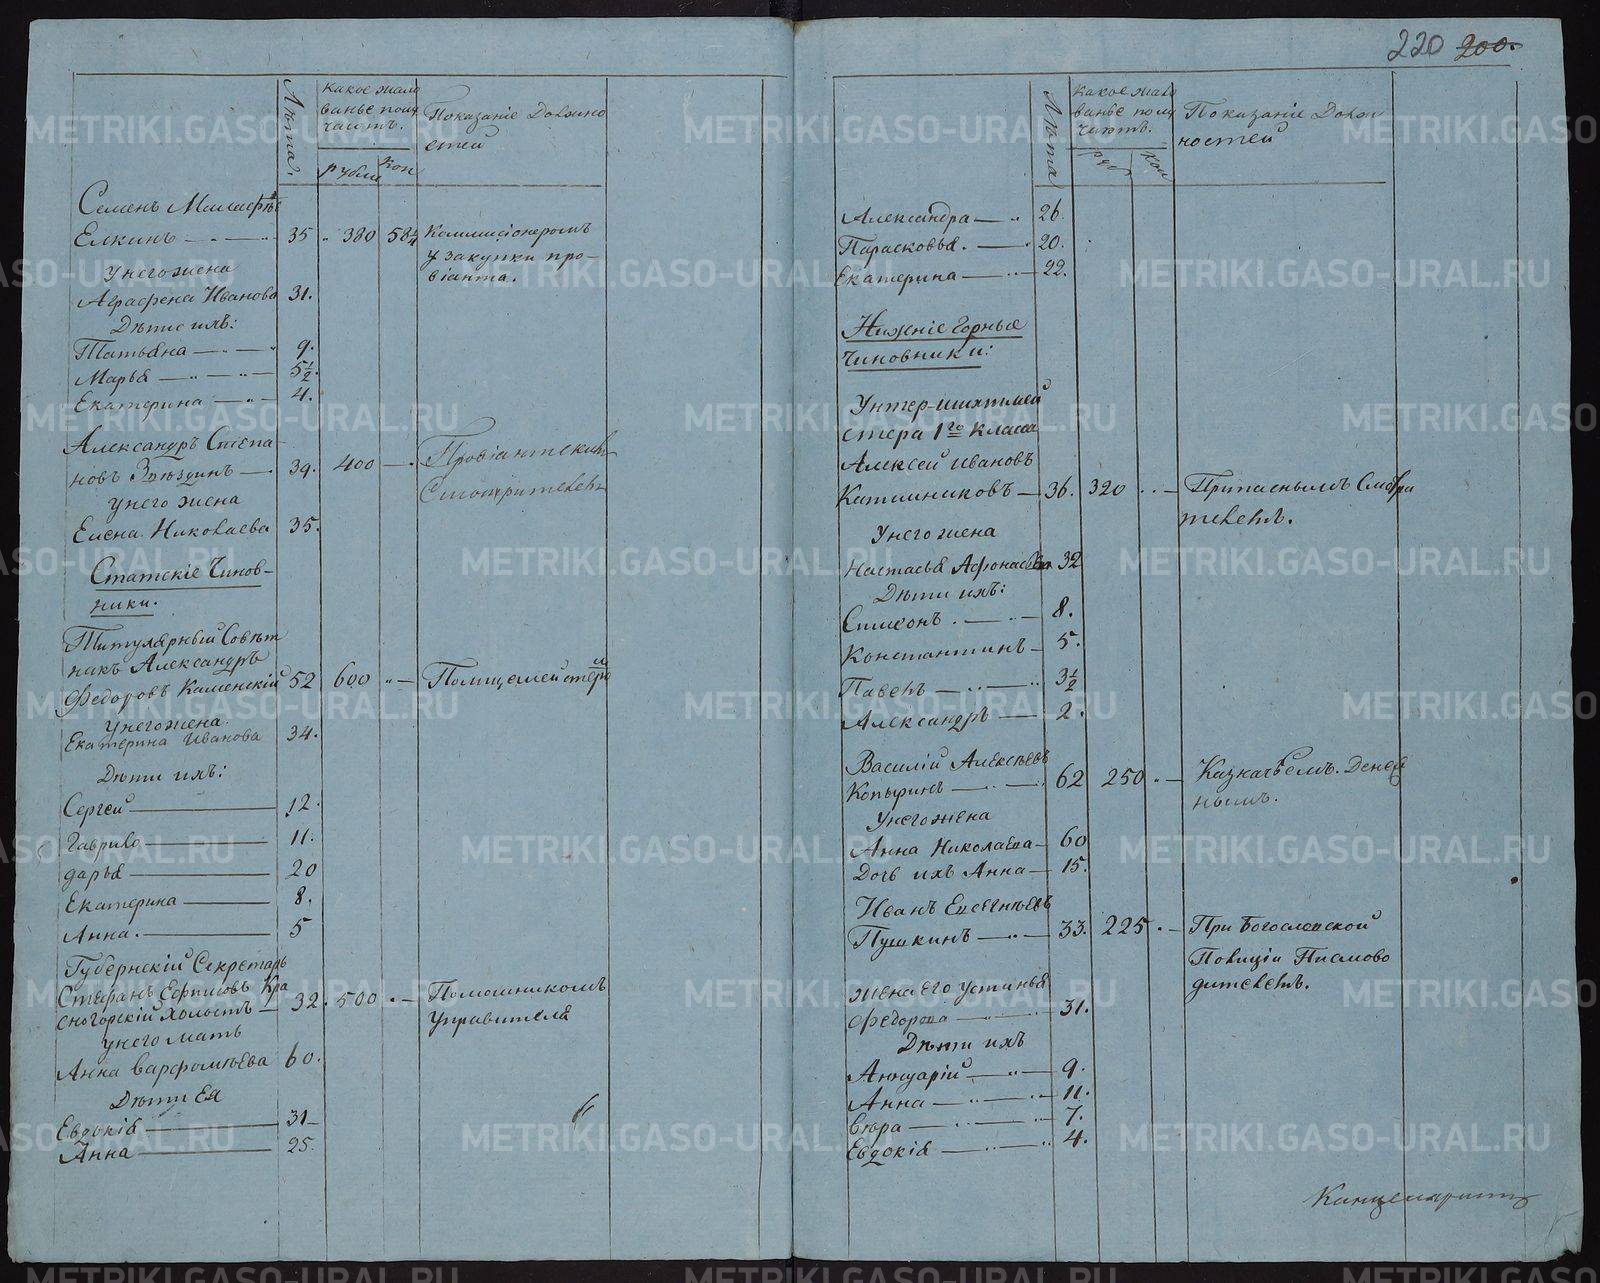 220 200.
Лѣта.
Какое жало
ванье полу
чаютъ.
рубли
коп
Показаніе Должно
стей
Семенъ
Елкинъ 35 380 58¼ Коммисіонеромъ
у закупки про-
віанта.
У него жена
Аграфена Иванова 31.
Дѣти ихъ:
Татьяна 9.
Марья 5½.
Екатерина 4.
Александръ Степа-
новъ 39. 400 Провіантскимъ
Смотрителемъ
у него жена
Елена Николаева 35.
Статскіе Чинов-
ники.
Титулярный Совѣт
никъ Александръ
Федоровъ Каменскій 52 600 Полицемейстеромъ
У него жена
Екатерина Иванова 34.
Дѣти ихъ:
Сергей 12.
Гаврило 11.
дарья 20
Екатерина 8.
Анна. 5
Губернскій Секретарь
Стефанъ Кра
сногорскій холостъ 32. 500 Помошникомъ
Управителя
у него мать
Анна Варфоломѣева 60.
Дѣти Ея
Евдокія 31
Анна 25.
Лѣта
Какое жало
ванье полу
чаютъ.
руб
коп
Показаніе Долж
ностей
Александра 26.
Парасковья. 20.
Екатерина 22.
Нижніе Горные
Чиновники:
Унтер-шихтмей
стера 1го класса
Алексей Ивановъ
Катышниковъ 36. 320 Припаснымъ Смотри
телемъ.
У него жена
Настасья Афонасьева 32
Дѣти ихъ:
Симеонъ. 8.
Константинъ 5.
Павелъ 3½
Александръ 2.
Василій Алексѣевъ
Копыринъ 62 250 Казначѣемъ Денеж
нымъ.
У него жена
Анна Николаева 60
Дочь ихъ Анна 15.
Иванъ Евгеньевъ
Пушкинъ 33. 225 При Богословской
Полиціи Письмово
дителемъ.
жена его Устинья
Федорова 31.
Дѣти ихъ
Аннуарій 9.
Анна 11.
Вѣра 7.
Евдокія 4.
Канцеляристъ
METRIKI.GASO-URAL.RU